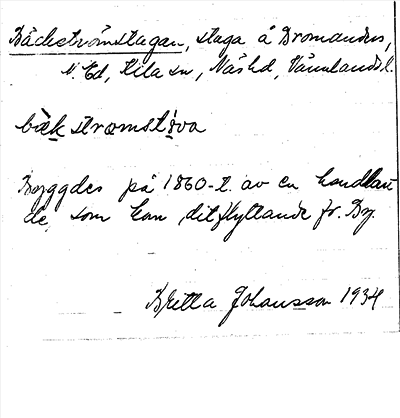 Bäckströmstugan, stuga å Dromanders,
N. Ed, Kila sn, Näs hd, Värmlands l.
bæk strœmstůva
Byggdes på 1860-t. av en handlan
de, som kom ditflyttande fr. By.
Britta Johansson 1934